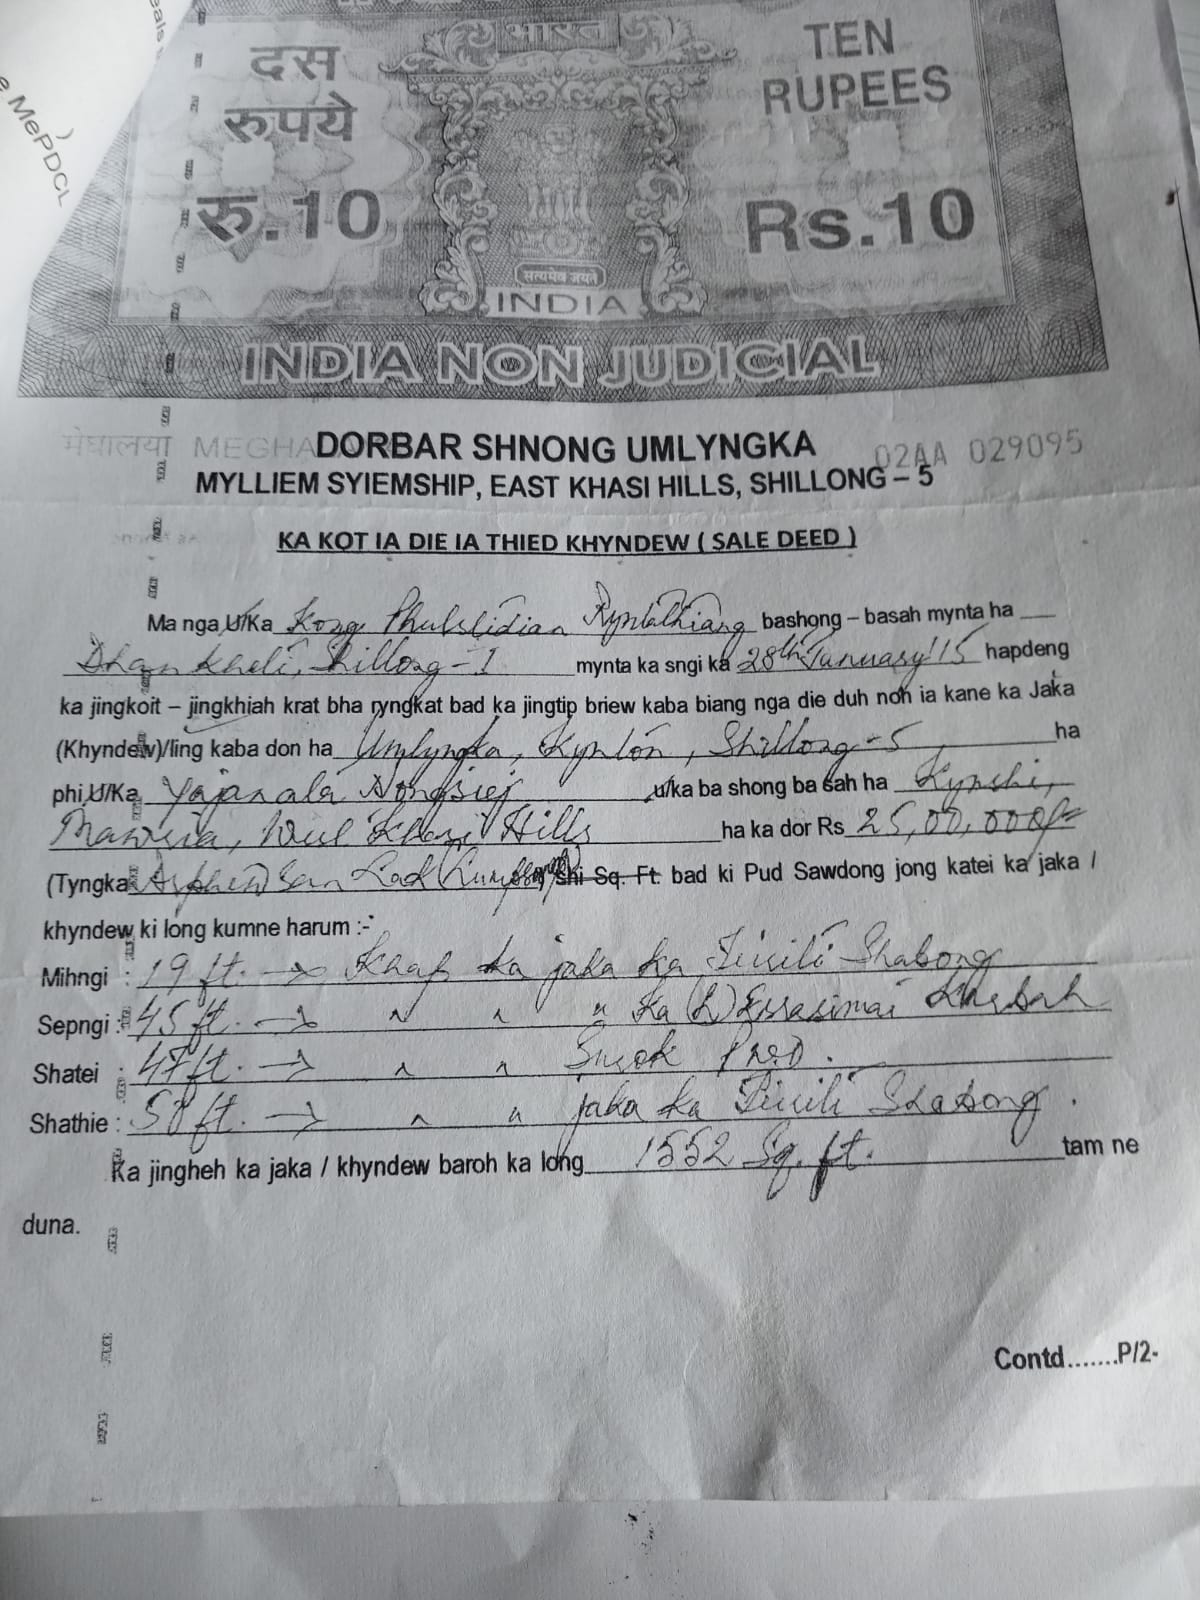 eals
e MePDCL
)
भारत
दस
रुपये
TEN
RUPEES
रु.10
Rs.10
सत्यमेव जयते
INDIA
INDIA NON JUDICIAL
मेघालया MEGHALAYA
02AA 029095
DORBAR SHNONG UMLYNGKA
MYLLIEM SYIEMSHIP, EAST KHASI HILLS, SHILLONG – 5
KA KOT IA DIE IA THIED KHYNDEW ( SALE DEED )
Ma nga U/Ka Kong bashong – basah mynta ha
Dhankheti, Shillong-1 mynta ka sngi ka 28th January'15 hapdeng
ka jingkoit – jingkhiah krat bha ryngkat bad ka jingtip briew kaba biang nga die duh noh ia kane ka Jaka
(Khyndew)/Iing kaba don ha Umlyngka, Kynton, Shillong-5 ha
phi U/Ka Nongsiej u/ka ba shong ba sah ha Kynshi,
Mawria, West Khasi Hills ha ka dor Rs 25,00,000/=
(Tyngka Arphew San Lad shi Sq. Ft. bad ki Pud Sawdong jong katei ka jaka /
khyndew ki long kumne harum :-
Mihngi : 19 ft. → Khap ka jaka ka Shabong
Sepngi : 45 ft. → " " " Ka (L) Kharbah
Shatei : 47 ft. → " " Surok PWD.
Shathie : 58 ft. → " " jaka ka Shabong.
Ka jingheh ka jaka / khyndew baroh ka long 1552 Sq. ft. tam ne
duna.
Contd.......P/2-